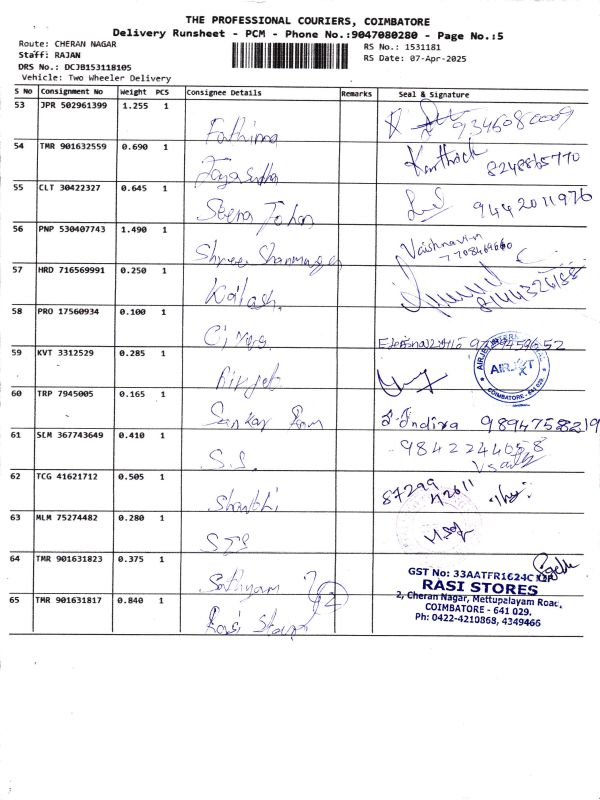 THE PROFESSIONAL COURIERS, COIMBATORE
Delivery Runsheet - PCM - Phone No.:9047080280 - Page No.:5
Route: CHERAN NAGAR
RS No.: 1531181
Staff: RAJAN
RS Date: 07-Apr-2025
DRS No.: DCJB153118105
Vehicle: Two Wheeler Delivery
S No Consignment No Weight PCS Consignee Details Remarks Seal & Signature
53 JPR 502961399 1.255 1
Fathima 9346080009
54 TMR 901632559 0.690 1
Jayasudha Karthick 8248865770
55 CLT 30422327 0.645 1
Seena Johan 9442011976
56 PNP 530407743 1.490 1
Shree Vaishnavi 7708469660
57 HRD 716569991 0.250 1
Kailash 8144326188
58 PRO 17560934 0.100 1
59 KVT 3312529 0.285 1
Airjet AIRJET COIMBATORE - 641 029.
60 TRP 7945005 0.165 1
Sankar Ram Indira 9894758219
61 SLM 367743649 0.410 1
S.S. 9842244658
62 TCG 41621712 0.505 1
Shanthi 87299 42611
63 MLM 75274482 0.280 1
STS
64 TMR 901631823 0.375 1
Sathyam
65 TMR 901631817 0.840 1
Rasi Stores
GST No: 33AATFR1624C
RASI STORES
2, Cheran Nagar, Mettupalayam Road,
COIMBATORE - 641 029.
Ph: 0422-4210868, 4349466